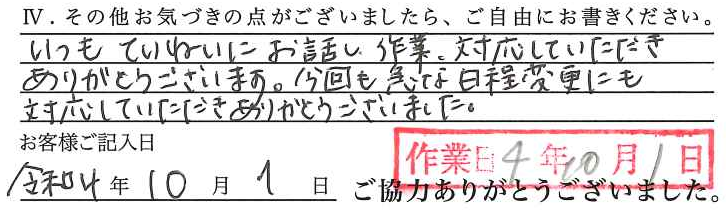 Ⅳ．その他お気づきの点がございましたら、ご自由にお書きください。
いつも ていねいに お話し、作業、対応していただき
ありがとうございます。今回も 急な 日程変更にも
対応していただきありがとうございました。
お客様ご記入日
令和4年10月1日
作業日4年10月1日
ご協力ありがとうございました。